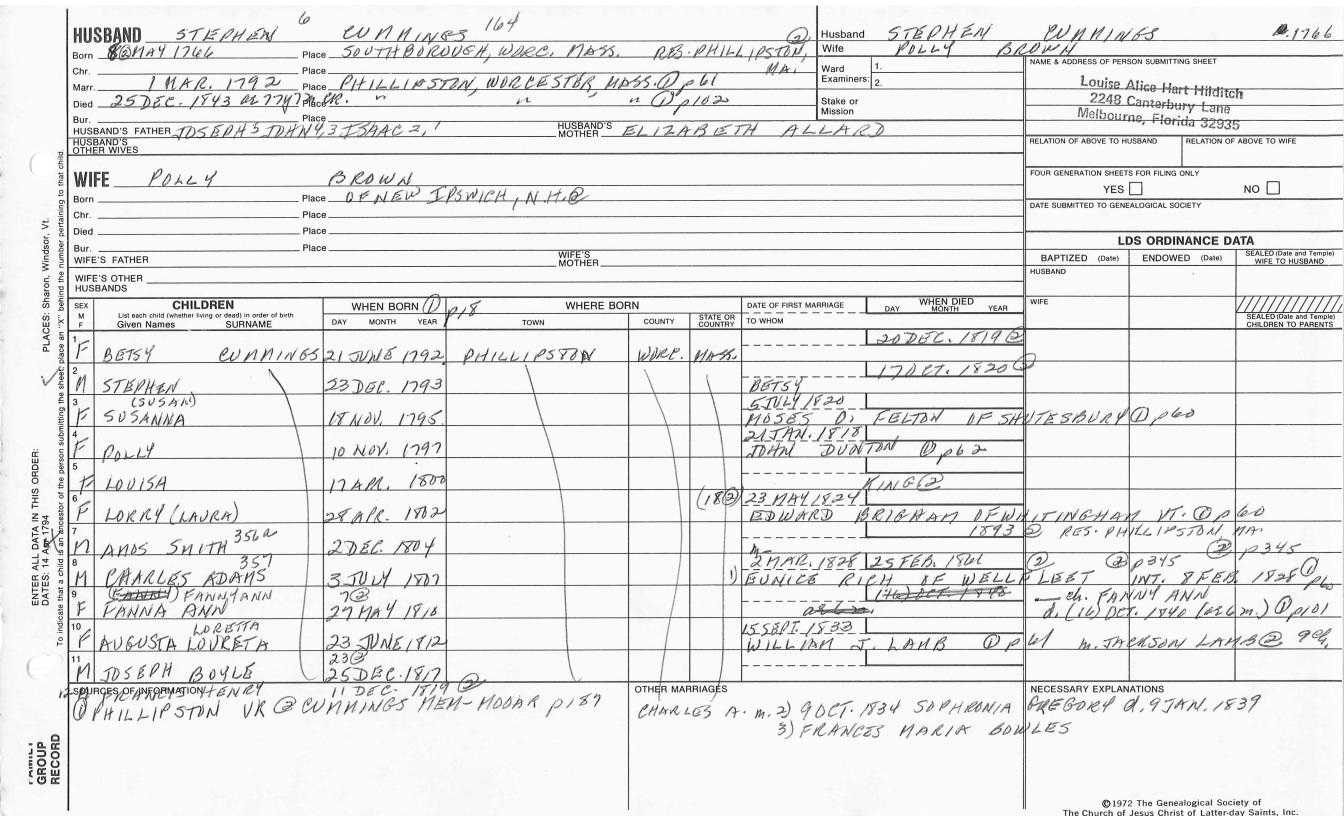 HUSBAND STEPHEN 6 CUMMINGS 164
Born 8② MAY 1766 Place SOUTHBOROUGH, WORC. MASS. RES. PHILLIPSTON, MA. ②
Chr. Place
Marr. 1 MAR. 1792 Place PHILLIPSTON, WORCESTER, MASS. ① p61
Died 25 DEC. 1843 Place " " " ① p102
Bur.
HUSBAND'S FATHER JOSEPH 5 JOHN 4, 3 ISAAC 2, 1 HUSBAND'S MOTHER ELIZABETH ALLARD
HUSBAND'S OTHER WIVES
WIFE POLLY BROWN
Born Place OF NEW IPSWICH, N.H. ②
Chr. Place
Died Place
Bur. Place
WIFE'S FATHER WIFE'S MOTHER
WIFE'S OTHER HUSBANDS
Husband STEPHEN CUMMINGS 1766
Wife POLLY BROWN
Ward Examiners: 1. 2.
Stake or Mission
NAME & ADDRESS OF PERSON SUBMITTING SHEET
Louise Alice Hart Hilditch
2248 Canterbury Lane
Melbourne, Florida 32935
RELATION OF ABOVE TO HUSBAND RELATION OF ABOVE TO WIFE
FOUR GENERATION SHEETS FOR FILING ONLY
YES NO
DATE SUBMITTED TO GENEALOGICAL SOCIETY
LDS ORDINANCE DATA
BAPTIZED (Date) ENDOWED (Date) SEALED (Date and Temple) WIFE TO HUSBAND
HUSBAND
WIFE
SEALED (Date and Temple) CHILDREN TO PARENTS
SEX M F CHILDREN WHEN BORN ① p18 WHERE BORN DATE OF FIRST MARRIAGE WHEN DIED
List each child (whether living or dead) in order of birth
Given Names SURNAME DAY MONTH YEAR TOWN COUNTY STATE OR COUNTRY TO WHOM DAY MONTH YEAR
1 F BETSY CUMMINGS 21 JUNE 1792 PHILLIPSTON WORC. MASS. 20 DEC. 1819 ②
2 M STEPHEN 23 DEC. 1793 BETSY 17 OCT. 1820 ②
3 F SUSANNA (SUSAN) 18 NOV. 1795 5 JULY 1820
MOSES D. FELTON OF SHUTESBURY ① p60
4 F POLLY 10 NOV. 1797 21 JAN. 1818
JOHN DUNTON ① p62
5 F LOUISA 17 APR. 1800 KING ②
6 F LORRY (LAURA) 28 APR. 1802 (18②) 23 MAY 1824
EDWARD BRIGHAM OF WHITINGHAM VT. ① p60
7 M AMOS SMITH 356a 2 DEC. 1804 1893 ② RES. PHILLIPSTON MA. ② p345
8 M CHARLES ADAMS 357 3 JULY 1807 m. 2 MAR. 1828 25 FEB. 1861 ② ② p345
1) EUNICE RICH OF WELLFLEET INT. 8 FEB. 1828 ① p60
9 F FANNA ANN (FANNY) FANNY ANN 7② 27 MAY 1810 (16) OCT. 1840
ch. FANNY ANN
d. (16) OCT. 1840 (ae 6 m.) ① p101
10 F AUGUSTA LOURETA LORETTA 23 JUNE 1812 15 SEPT. 1833
WILLIAM J. LAMB ① p61 m. JACKSON LAMB ② 9 ch.
11 M JOSEPH BOYLE 23② 25 DEC. 1817
12 FRANCIS HENRY 11 DEC. 1819 ②
SOURCES OF INFORMATION
① PHILLIPSTON VR ② CUMMINGS MEM-MOOAR p187
OTHER MARRIAGES
CHARLES A. m. 2) 9 OCT. 1834 SOPHRONIA GREGORY d. 9 JAN. 1839
3) FRANCES MARIA BOWLES
NECESSARY EXPLANATIONS
©1972 The Genealogical Society of
The Church of Jesus Christ of Latter-day Saints, Inc.
ENTER ALL DATA IN THIS ORDER:
DATES: 14 Apr 1794
PLACES: Sharon, Windsor, Vt.
To indicate that a child is an ancestor of the person submitting the sheet, place an "X" behind the number pertaining to that child.
FAMILY GROUP RECORD